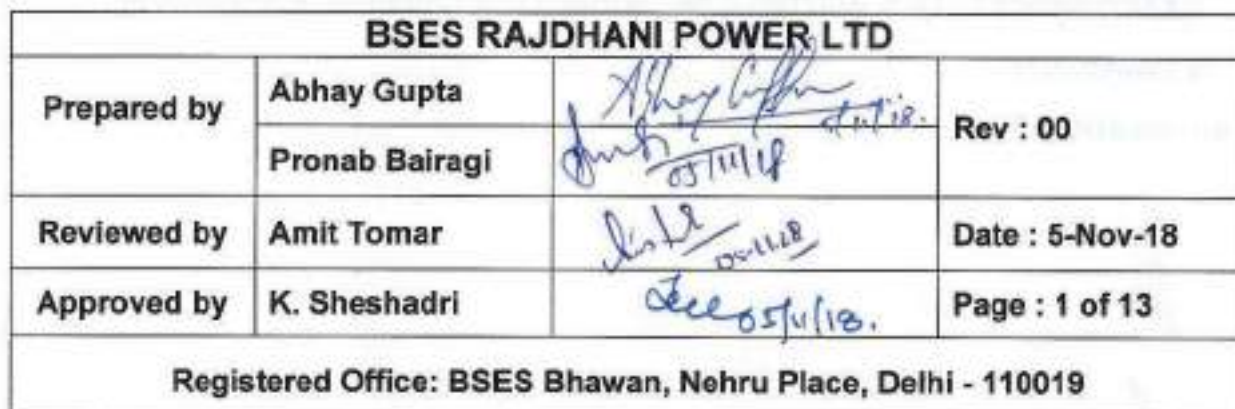 BSES RAJDHANI POWER LTD
Prepared by
Abhay Gupta
Abhay Gupta
5/11/18.
Rev : 00
Pronab Bairagi
05/11/18
Reviewed by
Amit Tomar
05-11-18
Date : 5-Nov-18
Approved by
K. Sheshadri
05/11/18.
Page : 1 of 13
Registered Office: BSES Bhawan, Nehru Place, Delhi - 110019